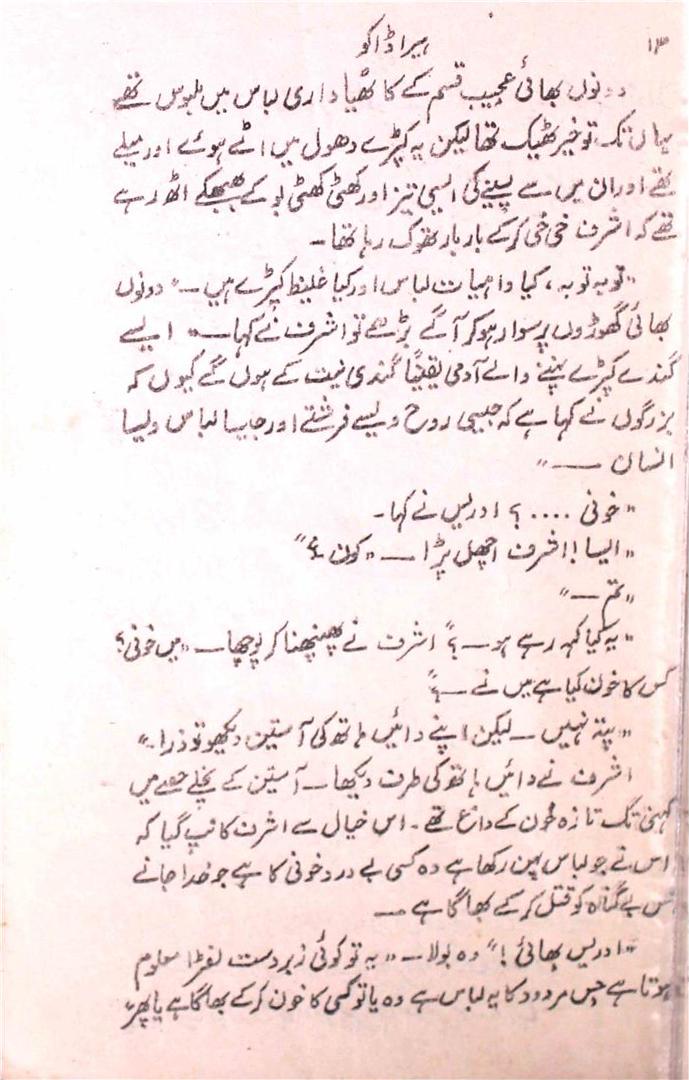 ۱۳ ہیرا ڈاکو
دونوں بھائی عجیب قسم کے کاٹھیاداری لباس میں ملبوس تھے
یہاں تک تو خیر ٹھیک تھا لیکن یہ کپڑے دھول میں اٹے ہوئے اور میلے
تھے اور ان میں سے پسینے کی ایسی تیز اور کھٹی کھٹی بو کے بھبھکے اٹھ رہے
تھے کہ اشرف خی خی کر کے بار بار تھوک رہا تھا۔
"توبہ توبہ، کیا واہیات لباس اور کیا غلیظ کپڑے ہیں۔" دونوں
بھائی گھوڑوں پر سوار ہو کر آگے بڑھے تو اشرف نے کہا۔ "ایسے
گندے کپڑے پہننے والے آدمی یقیناً گندی نیت کے ہوں گے کیوں کہ
بزرگوں نے کہا ہے کہ جیسی روح ویسے فرشتے اور جیسا لباس ویسا
انسان ــــ"
"خونی ....؟ ادریس نے کہا۔
"ایسا! اشرف اچھل پڑا ــ "کون ــ؟"
"تم ــ"
"یہ کیا کہہ رہے ہو ــ؟" اشرف نے پوچھا ــ "میں خونی؟
کس کا خون کیا ہے میں نے ــ؟"
"پتہ نہیں ــ لیکن اپنے دائیں ہاتھ کی آستین دیکھو تو ذرا۔"
اشرف نے دائیں ہاتھ کی طرف دیکھا ــ آستین کے نچلے حصے میں
کہنی تک تازہ خون کے داغ تھے۔ اس خیال سے اشرف کانپ گیا کہ
اس نے جو لباس پہن رکھا ہے وہ کسی بے درد خونی کا ہے جو خدا جانے
کس بے گناہ کو قتل کر کے بھاگا ہے ــ
"ادریس بھائی!" وہ بولا ــ "یہ تو کوئی زبردست لفڑا معلوم
ہوتا ہے جس مردود کا یہ لباس ہے وہ یا تو کسی کا خون کر کے بھاگا ہے یا پھر"